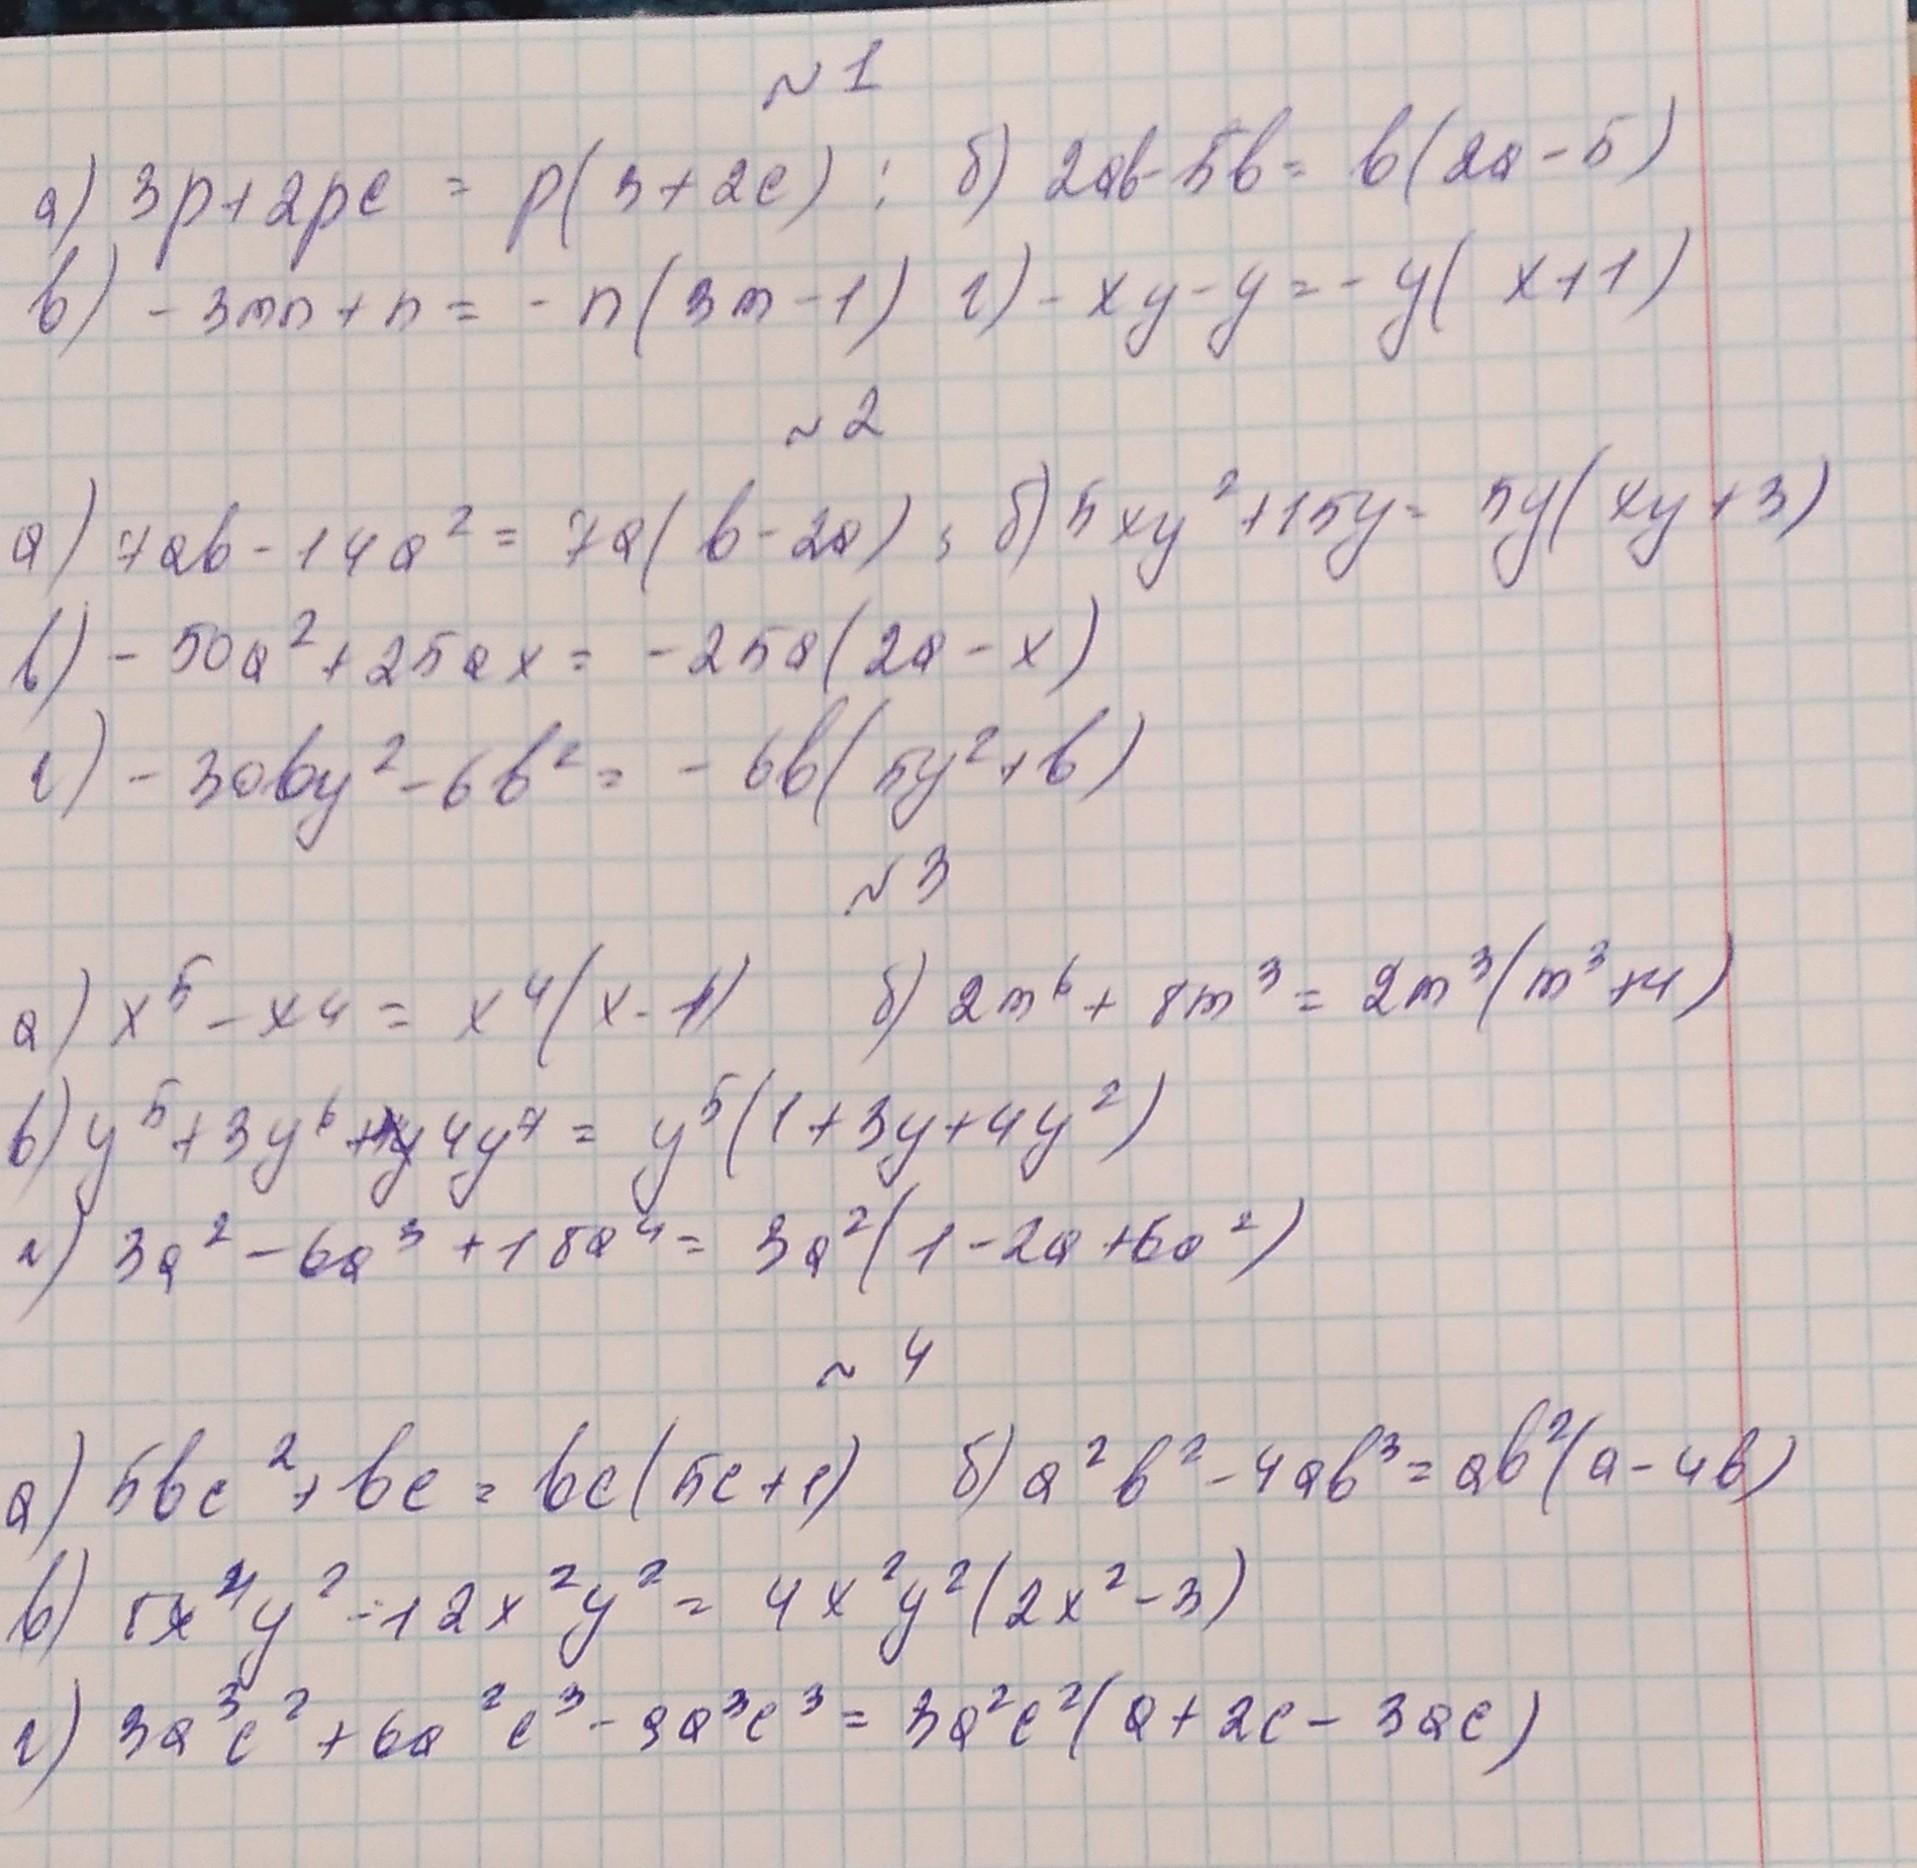 ~1
а) 3p+2pc = p(3+2c) ; б) 2ab-5b= b(2a-5)
в) -3mn+n = -n(3m-1) г) -xy-y=-y(x+1)
~2
а) 7ab-14a² = 7a(b-2a) ; б) 5xy²+15y= 5y(xy+3)
в) -50a²+25ax = -25a(2a-x)
г) -30by²-6b² = -6b(5y²+b)
№3
а) x⁵-x4 = x⁴(x-1) б) 2m⁶+8m³ = 2m³(m³+4)
в) y⁵+3y⁶+4y⁷ = y⁵(1+3y+4y²)
г) 3a²-6a³+18a⁴ = 3a²(1-2a+6a²)
~4
а) 5bc²+bc = bc(5c+1) б) a²b²-4ab³ = ab²(a-4b)
в) 8x⁴y²-12x²y² = 4x²y²(2x²-3)
г) 3a³c²+6a²c³-9a³c³ = 3a²c²(a+2c-3ac)